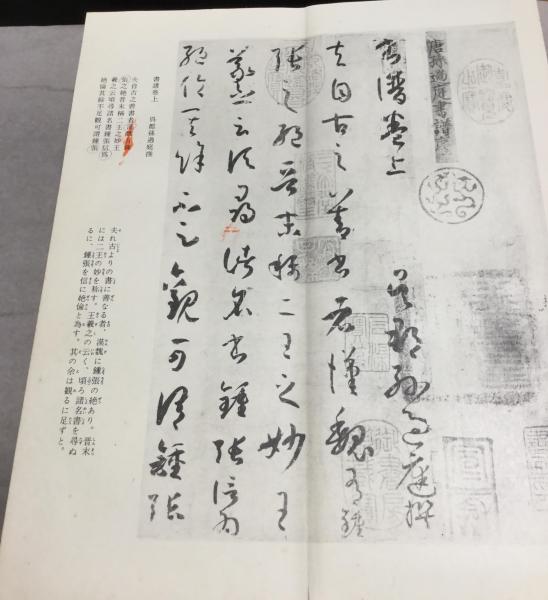 唐孫過庭書譜序
書譜卷上 吳郡孫過庭撰
夫自古之善書者漢魏有鍾
張之絶晉末稱二王之妙王
羲之云頃尋諸名書鍾張信為
絶倫其餘不足觀可謂鍾張
書譜卷上 呉郡孫過庭撰
夫自古之善書者漢魏有鍾
張之絶晉末稱二王之妙王
羲之云頃尋諸名書鍾張信爲
絶倫其餘不足觀可謂鍾張
夫れ古よりの書に善なる者、漢魏に鍾張の絶あり。晋末
には二王の妙を称す。王羲之の云く、頃ろ諸名書を尋ぬ
るに、鍾張を信に絶倫と為す。其の余は観るに足ずと。